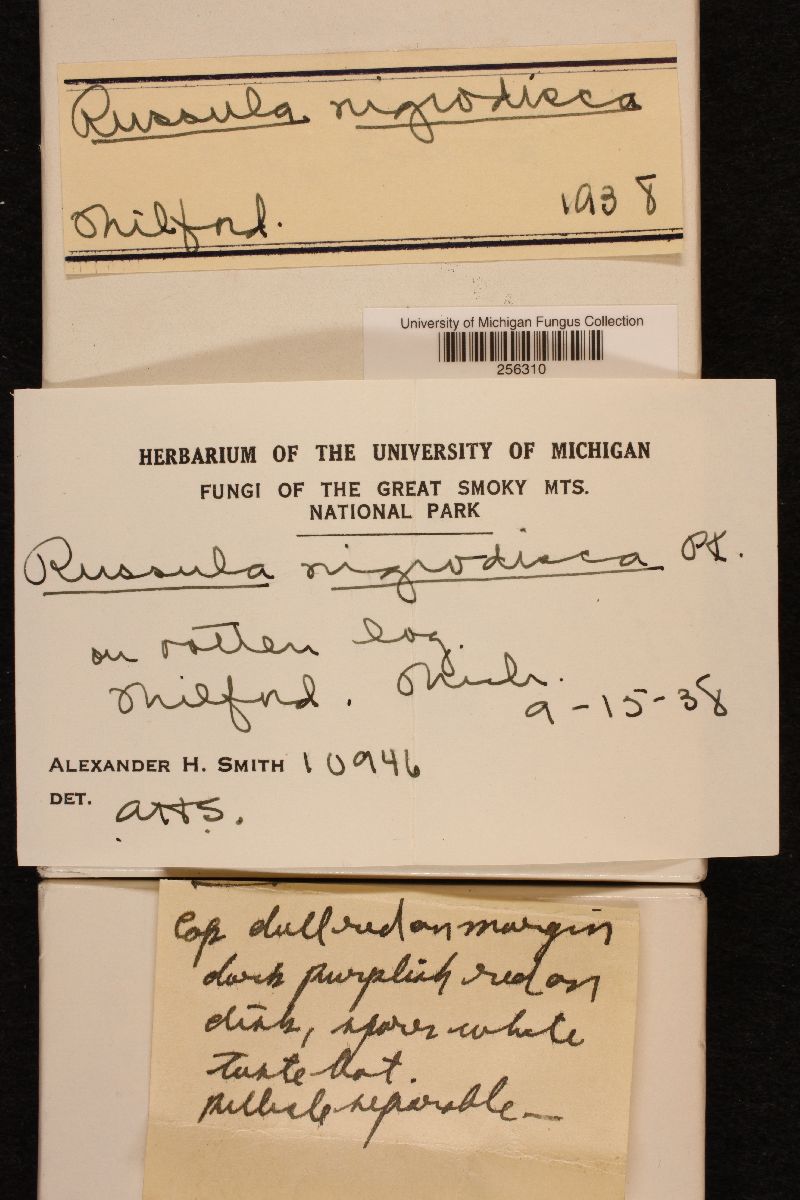 Russula nigrodisca
Milford. 1938
University of Michigan Fungus Collection
256310
HERBARIUM OF THE UNIVERSITY OF MICHIGAN
FUNGI OF THE GREAT SMOKY MTS.
NATIONAL PARK
Russula nigrodisca Pk.
on rotten log.
Milford. Mich.
9-15-38
ALEXANDER H. SMITH 10946
DET. AHS.
Cap dull red on margin
dark purplish red on
disk, spores white
taste hot.
pellicle separable—